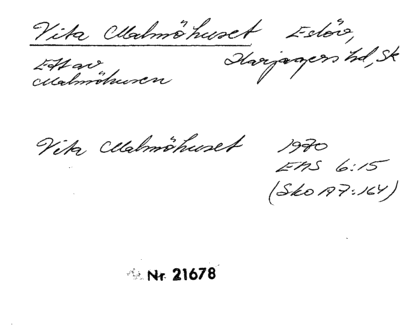 Vita Malmöhuset Eslöv,
Ett av Harjagers hd, Sk
Malmöhusen
Vita Malmöhuset 1970
ENS 6:15
(Sko A7:164)
Nr 21678